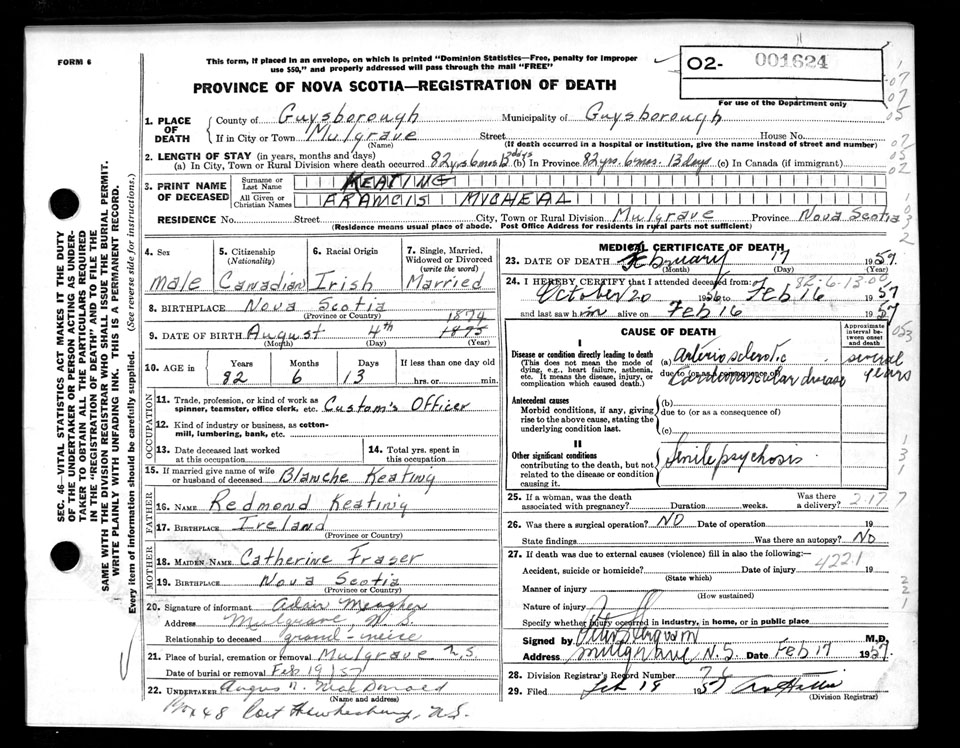 FORM 6
This form, if placed in an envelope, on which is printed "Dominion Statistics—Free, penalty for improper
use $50," and properly addressed will pass through the mail "FREE"
O2- 001624
For use of the Department only
PROVINCE OF NOVA SCOTIA—REGISTRATION OF DEATH
1. PLACE OF DEATH
County of Guysborough Municipality of Guysborough
If in City or Town Mulgrave Street House No.
(Name) (If death occurred in a hospital or institution, give the name instead of street and number)
2. LENGTH OF STAY (in years, months and days)
(a) In City, Town or Rural Division where death occurred 82 yrs 6 mos 13 days (b) In Province 82 yrs. 6 mos. 13 days (c) In Canada (if immigrant)
3. PRINT NAME OF DECEASED
Surname or Last Name KEATING
All Given or Christian Names FRANCIS MICHEAL
RESIDENCE No. Street City, Town or Rural Division Mulgrave Province Nova Scotia
(Residence means usual place of abode. Post Office Address for residents in rural parts not sufficient)
4. Sex male
5. Citizenship (Nationality) Canadian
6. Racial Origin Irish
7. Single, Married, Widowed or Divorced (write the word) Married
8. BIRTHPLACE Nova Scotia
(Province or Country)
1874
9. DATE OF BIRTH August 4th 1875
(Month) (Day) (Year)
10. AGE in Years Months Days If less than one day old
82 6 13 hrs. or min.
OCCUPATION
11. Trade, profession, or kind of work as spinner, teamster, office clerk, etc. Custom's Officer
12. Kind of industry or business, as cotton-mill, lumbering, bank, etc.
13. Date deceased last worked at this occupation
14. Total yrs. spent in this occupation
15. If married give name of wife or husband of deceased Blanche Keating
FATHER
16. NAME Redmond Keating
17. BIRTHPLACE Ireland
(Province or Country)
MOTHER
18. MAIDEN NAME Catherine Fraser
19. BIRTHPLACE Nova Scotia
(Province or Country)
20. Signature of informant Adair Meagher
Address Mulgrave, N.S.
Relationship to deceased grand-niece
21. Place of burial, cremation or removal Mulgrave N.S.
Date of burial or removal Feb 19/57
22. UNDERTAKER Angus N. MacDonald
(Name and address)
Port Hawkesbury, N.S.
MEDICAL CERTIFICATE OF DEATH
23. DATE OF DEATH February 17 1957
(Month) (Day) (Year)
82-6-13-00
24. I HEREBY CERTIFY that I attended deceased from:
October 20 1956 to Feb 16 1957
and last saw him alive on Feb 16 1957
CAUSE OF DEATH
Approximate interval between onset and death
I
Disease or condition directly leading to death (a) Arteriosclerotic several years
(This does not mean the mode of dying, e.g., heart failure, asthenia, etc. It means the disease, injury, or complication which caused death.)
due to (or as a consequence of) Cardiovascular disease
Antecedent causes
Morbid conditions, if any, giving rise to the above cause, stating the underlying condition last.
(b)
due to (or as a consequence of)
(c)
II
Other significant conditions
contributing to the death, but not related to the disease or condition causing it.
Senile psychosis
25. If a woman, was the death associated with pregnancy? Duration weeks. Was there a delivery?
2-17 7
26. Was there a surgical operation? NO Date of operation 19
State findings Was there an autopsy? NO
27. If death was due to external causes (violence) fill in also the following:—
4221
Accident, suicide or homicide? Date of injury 19
(State which)
Manner of injury
(How sustained)
Nature of injury
Specify whether injury occurred in industry, in home, or in public place
Signed by M.D.
Address Mulgrave N.S. Date Feb 17 1957
28. Division Registrar's Record Number 7
29. Filed Feb 19 1957
(Division Registrar)
SEC. 46—VITAL STATISTICS ACT MAKES IT THE DUTY
OF THE UNDERTAKER OR PERSON ACTING AS UNDER-
TAKER TO OBTAIN ALL THE PARTICULARS REQUIRED
IN THE "REGISTRATION OF DEATH" AND TO FILE THE
SAME WITH THE DIVISION REGISTRAR WHO SHALL ISSUE THE BURIAL PERMIT.
WRITE PLAINLY WITH UNFADING INK. THIS IS A PERMANENT RECORD.
Every item of information should be carefully supplied. (See reverse side for instructions.)